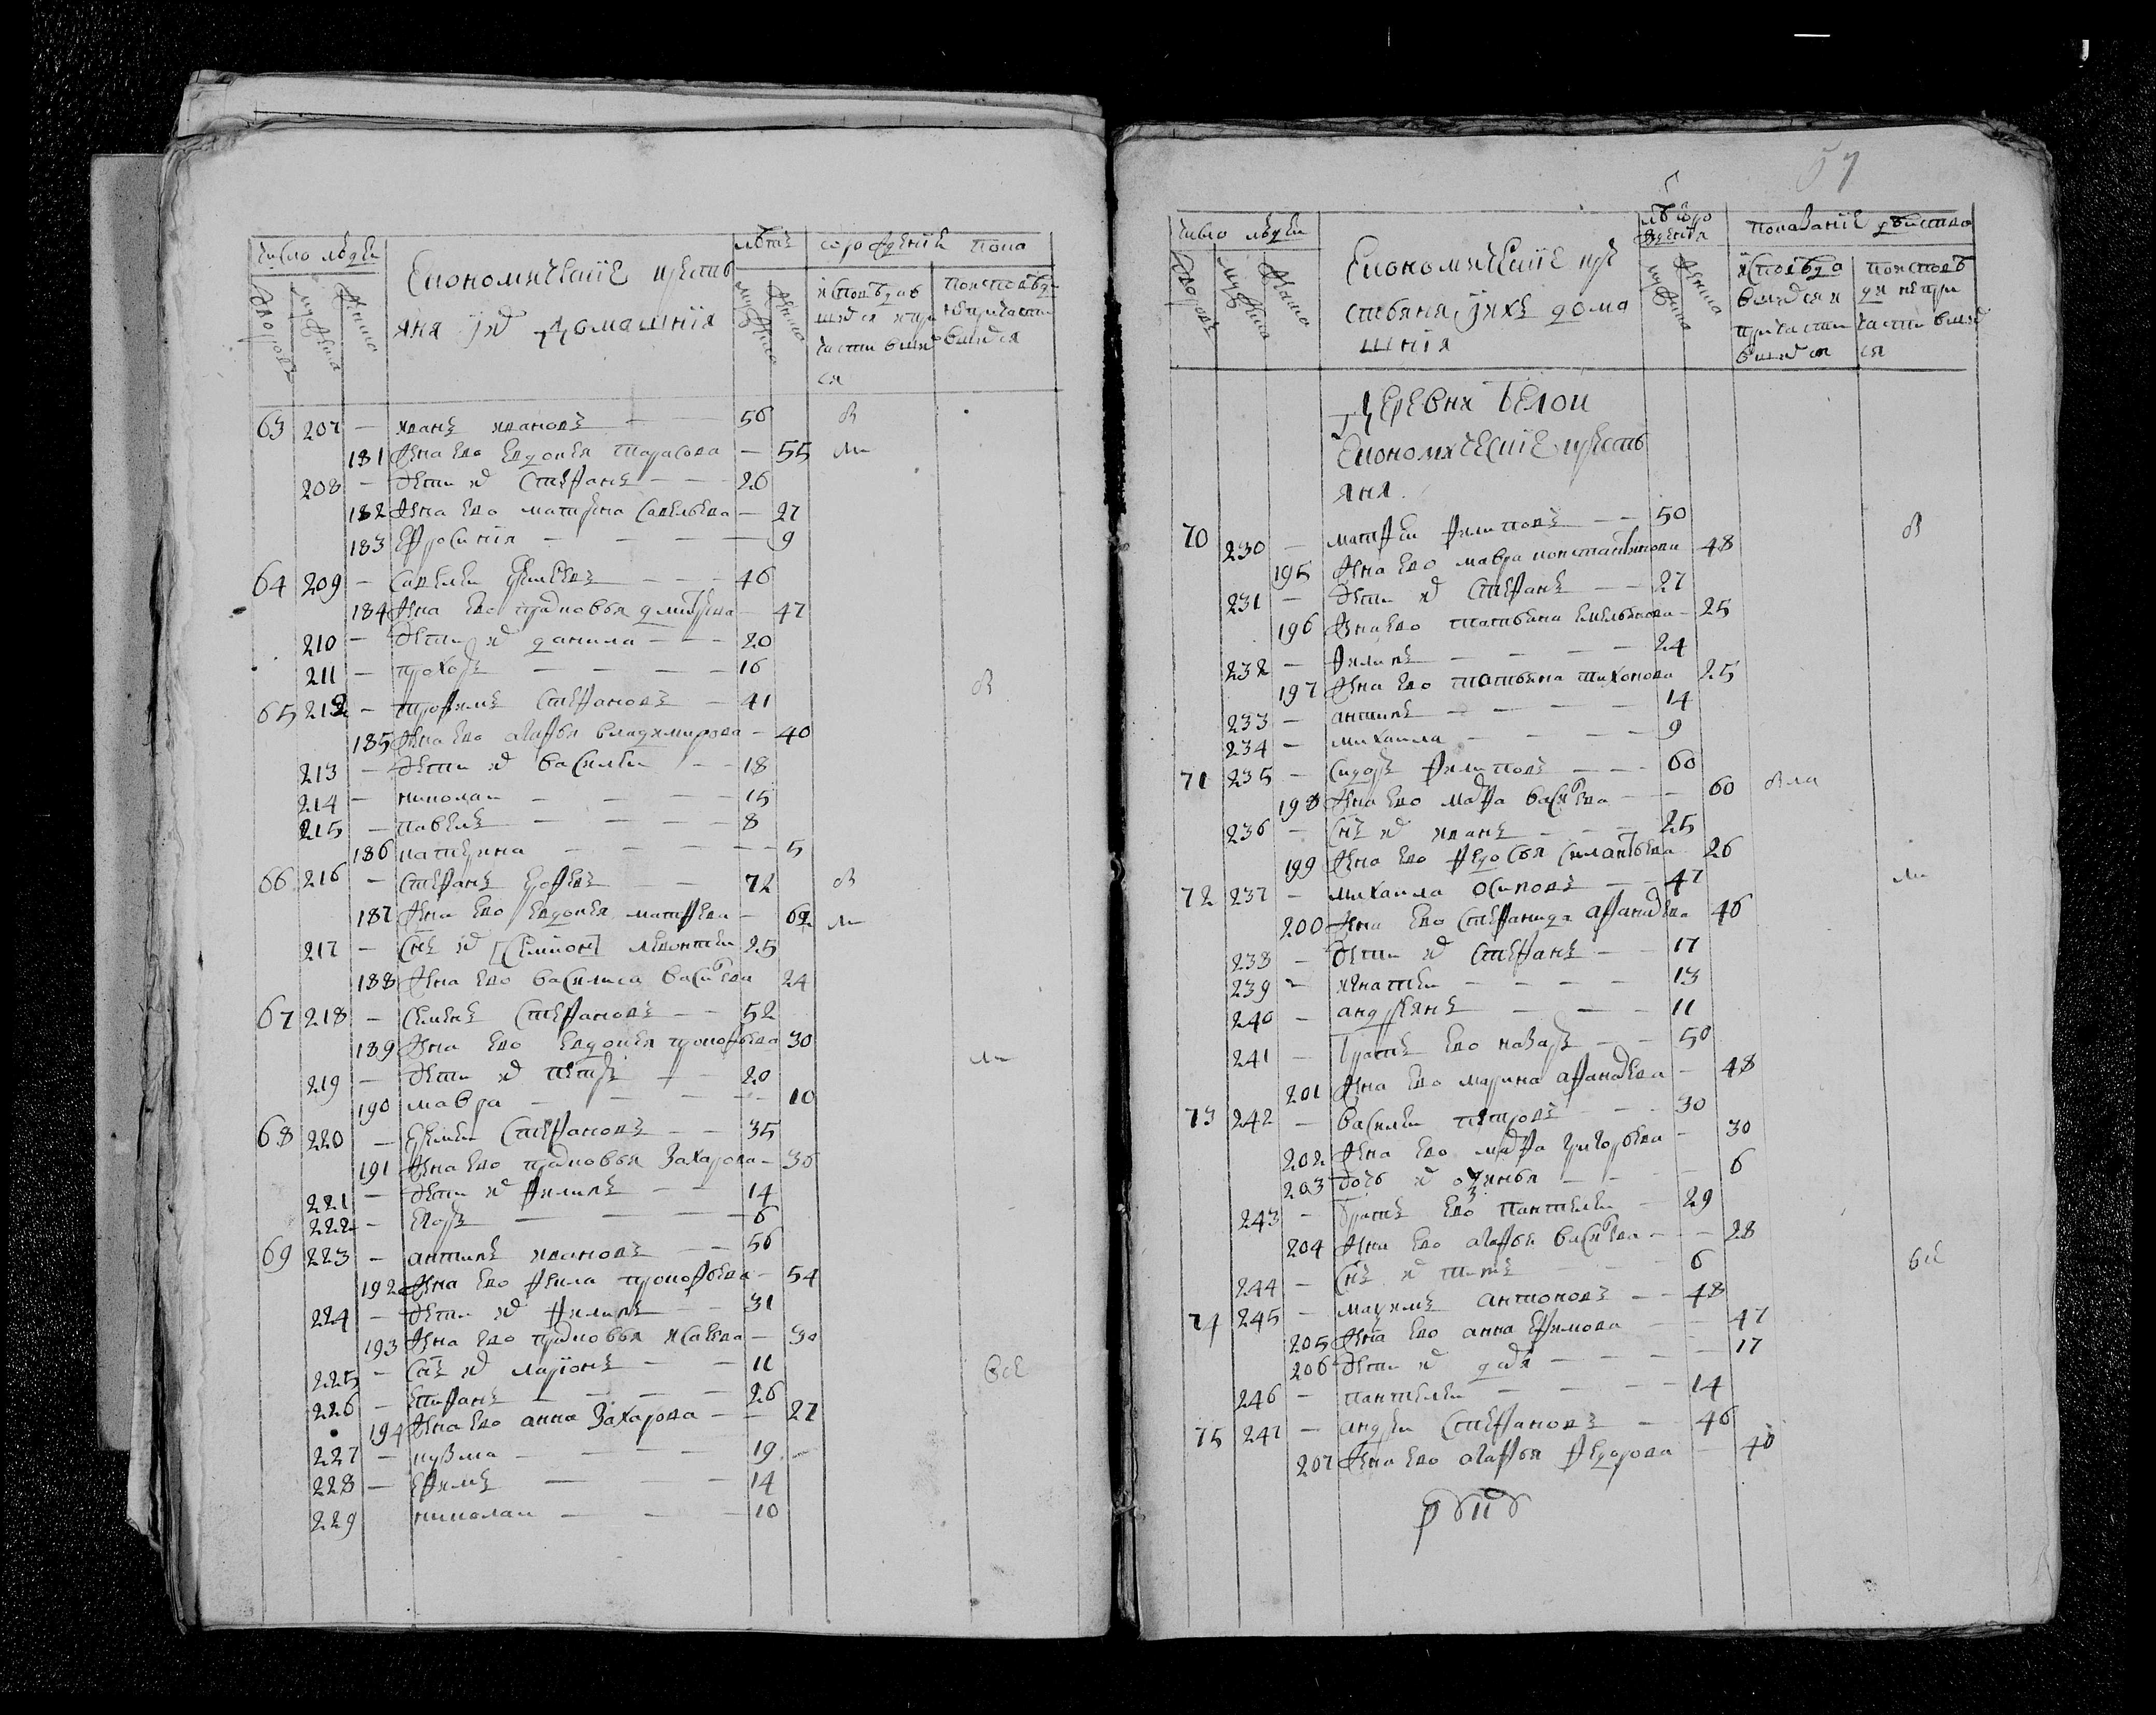 число людеи
Економическiе кресть
яня их домашнiя
лѣтъ
сорожденiя
пока
дворовъ
мужеска
женска
мужеска
женска
исповѣдав
шихся и при
частившихся
поисповѣди
непричастившихся
63 207 — иванъ ивановъ — 56
181 жена ево евдокея тарасова — 55
208 — дети их стефанъ — 26
182 жена ево матрена савельева — 27
183 ефросинiя — 9
64 209 — савелеи — 46
184 жена ево прасковья дмитрева — 47
210 — дети их данила — 20
211 — прохоръ — 16
65 212 — трофимъ стефановъ — 41
185 жена ево агафья владимирова — 40
213 — дети их василеи — 18
214 — николаи — 15
215 — павелъ — 8
186 катерина — 5
66 216 — стефанъ ерофеевъ — 72
187 жена ево евдокея матфеева — 62
217 — снъ их [семион] леонтеи 25
188 жена ево василиса васильева 24
67 218 — семенъ стефановъ — 52
189 жена ево евдокея прокофьева 30
219 — дети их петръ — 20
190 мавра — 10
68 220 — еремеи стефановъ — 35
191 жена ево прасковья захарова — 36
221 — дети их филипъ — 14
222 — егоръ — 6
69 223 — антипъ ивановъ — 56
192 жена ево фекла прокофьева — 54
224 — дети их филипъ — 31
193 жена ево прасковья исаева — 30
225 — снъ их ларiонъ — 11
226 — епифанъ — 26
194 жена ево анна захарова — 27
227 — кузма — 19
228 — ефимъ — 14
229 николаи — 10
все
57
число людеи
Економическiе кре
стьяня ихъ дома
шнiя
лѣта
рожденiя
показанiе действа
дворовъ
мужеска
женска
мужеска
женска
исповѣдо
вшихся и
причасти
вшихся
поисповѣ
ди непри
частивших
ся
Деревня Белои
Економическiе кресть
яня.
70 230 — матфеи филиповъ — 50
195 жена ево мавра константинова 48
231 — дети их стефанъ — 27
196 жена ево татьяна емельянова — 25
232 — филипъ — 24
197 жена ево татьяна тихонова 25
233 — антипъ — 14
234 — михаила — 9
71 235 — сидоръ филиповъ — 60
198 жена ево марфа васильева — 60
236 — снъ их иванъ — 25
199 жена ево федосья силантьева 26
72 237 — михаила осиповъ — 47
200 жена ево стефанида афанасьева 46
238 — дети их стефанъ — 17
239 — игнатеи — 13
240 — андреянъ — 11
241 — братъ ево назаръ — 50
201 жена ево марина афанасьева — 48
73 242 — василеи петровъ — 30
202 жена ево марфа григорьева — 30
203 дочь их — 6
243 — братъ ево пантелеи — 29
204 жена ево агафья васильева — 28
244 — снъ их — 6
74 245 — максимъ антоновъ — 48
205 жена ево анна ефимова — 47
206 дети их — 17
246 — пантелеи — 14
75 247 — андреи стефановъ — 46
207 жена ево агафья федорова — 40
все